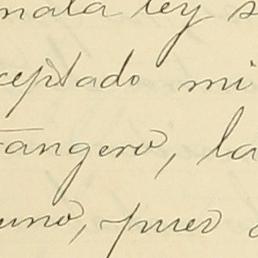 mala ley s
ceptado mi
rangero, la
uno, pues